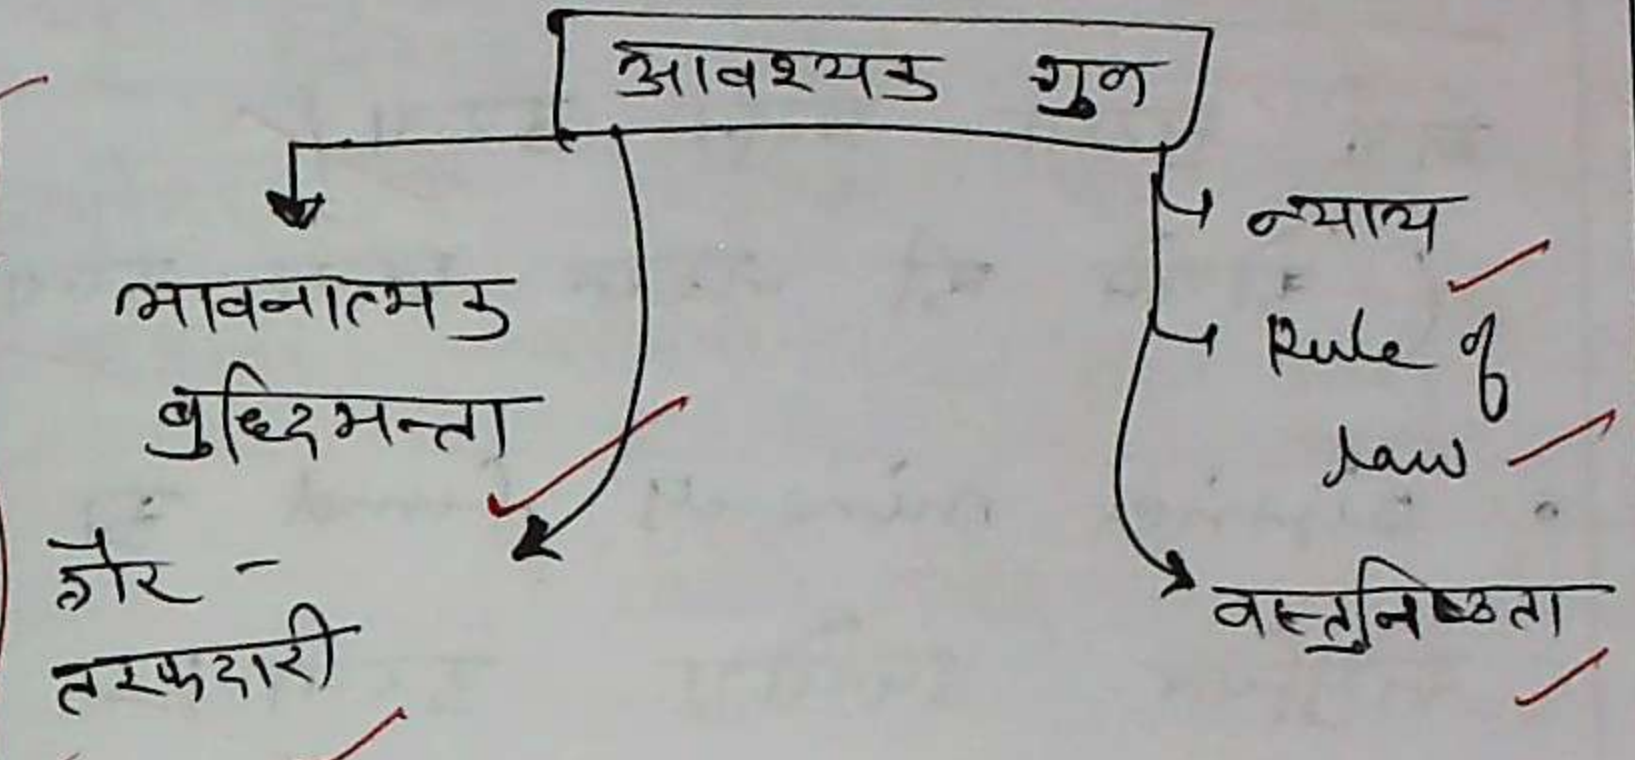 आवश्यक गुण
भावनात्मक
बुद्धिमत्ता
गैर -
तरफदारी
न्याय
Rule of
Law
वस्तुनिष्ठता